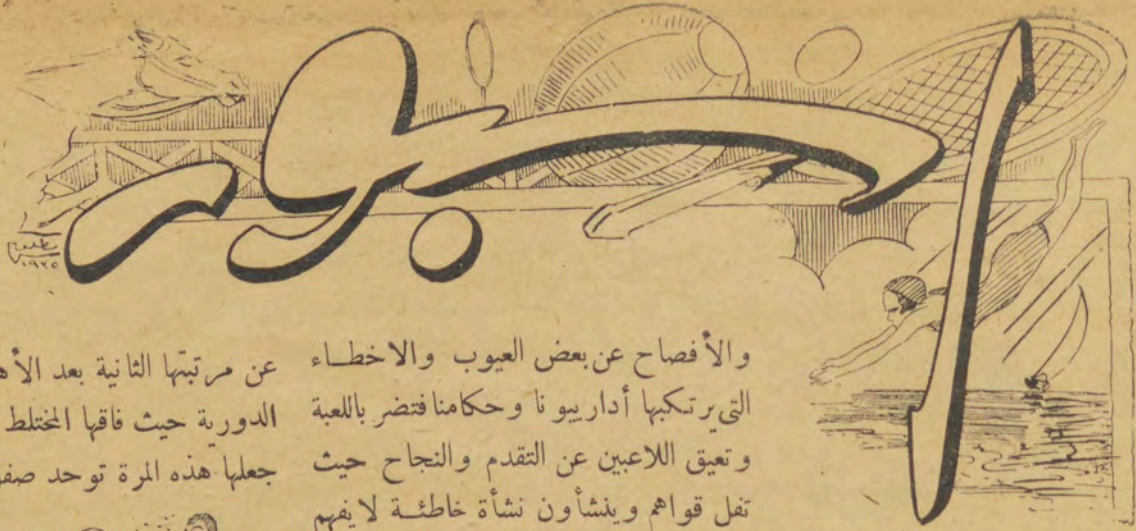 اسبور
١٩٢٥
والأفصاح عن بعض العيوب والاخطاء
التى يرتكبها أداريونا وحكامنا فتضر باللعبة
وتعيق اللاعبين عن التقدم والنجاح حيث
تفل قواهم وينشأون نشأة خاطئة لا يفهم
عن مرتبتها الثانية بعد الأه
الدورية حيث فاقها المختلط
جعلها هذه المرة توحد صفو